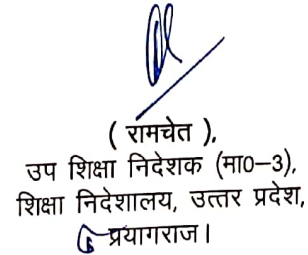 ( रामचेत ),
उप शिक्षा निदेशक (मा0–3),
शिक्षा निदेशालय, उत्तर प्रदेश,
प्रयागराज।